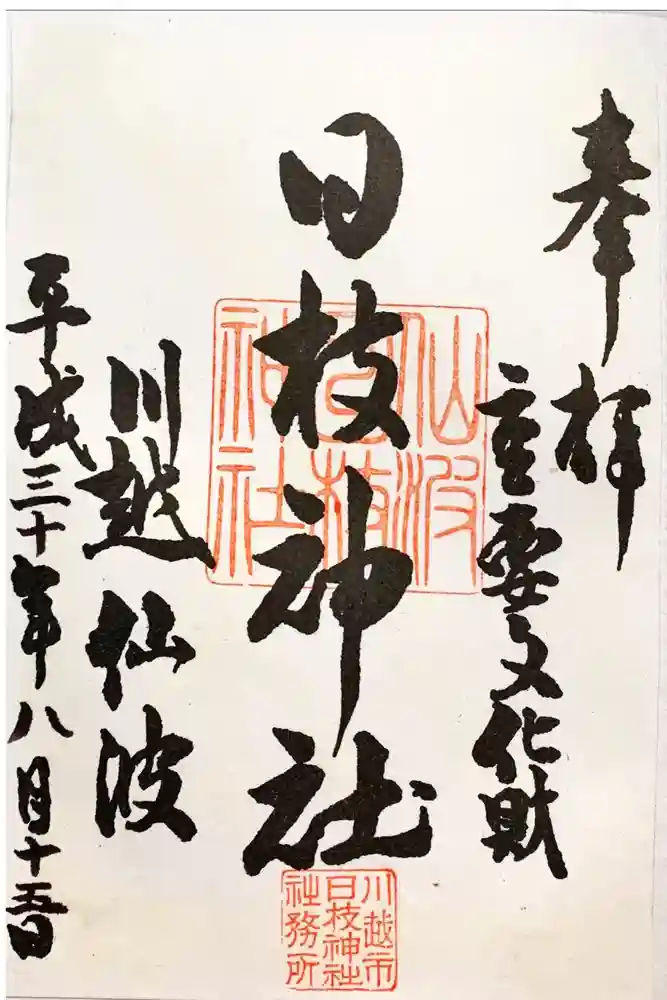 奉拝
重要文化財
日枝神社
川越仙波
平成三十年八月十五日
仙波
日枝
神社
川越市
日枝神社
社務所